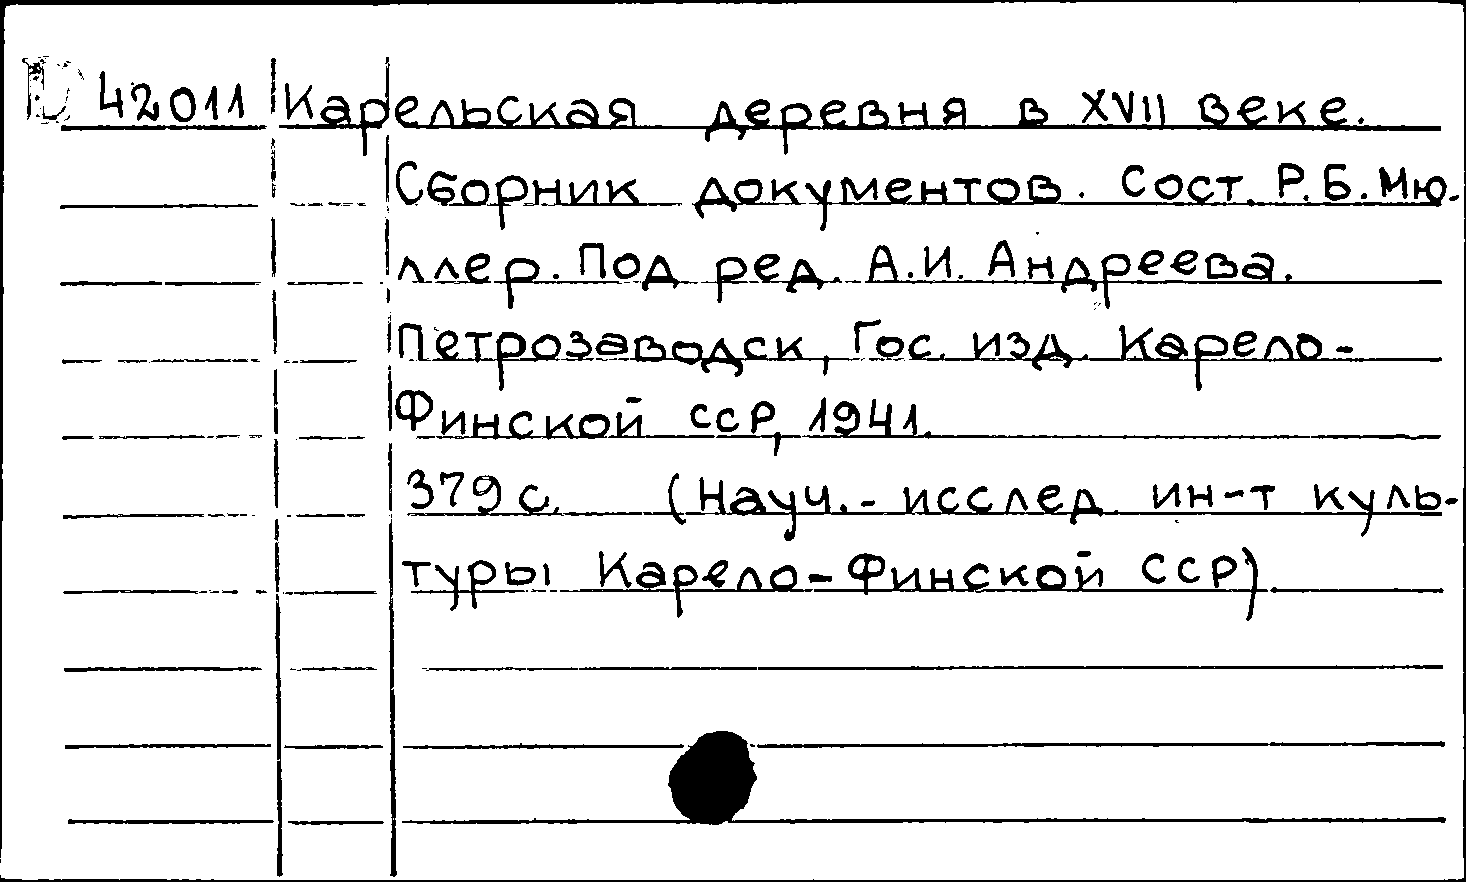 D 42011 Карельская деревня в XVII веке.
Сборник документов. Сост. Р.Б.Мю-
ллер. Под ред. А.И. Андреева.
Петрозаводск, Гос. изд. Карело-
Финской ССР, 1941.
379 с. (Науч.- исслед. ин-т куль-
туры Карело-Финской ССР).